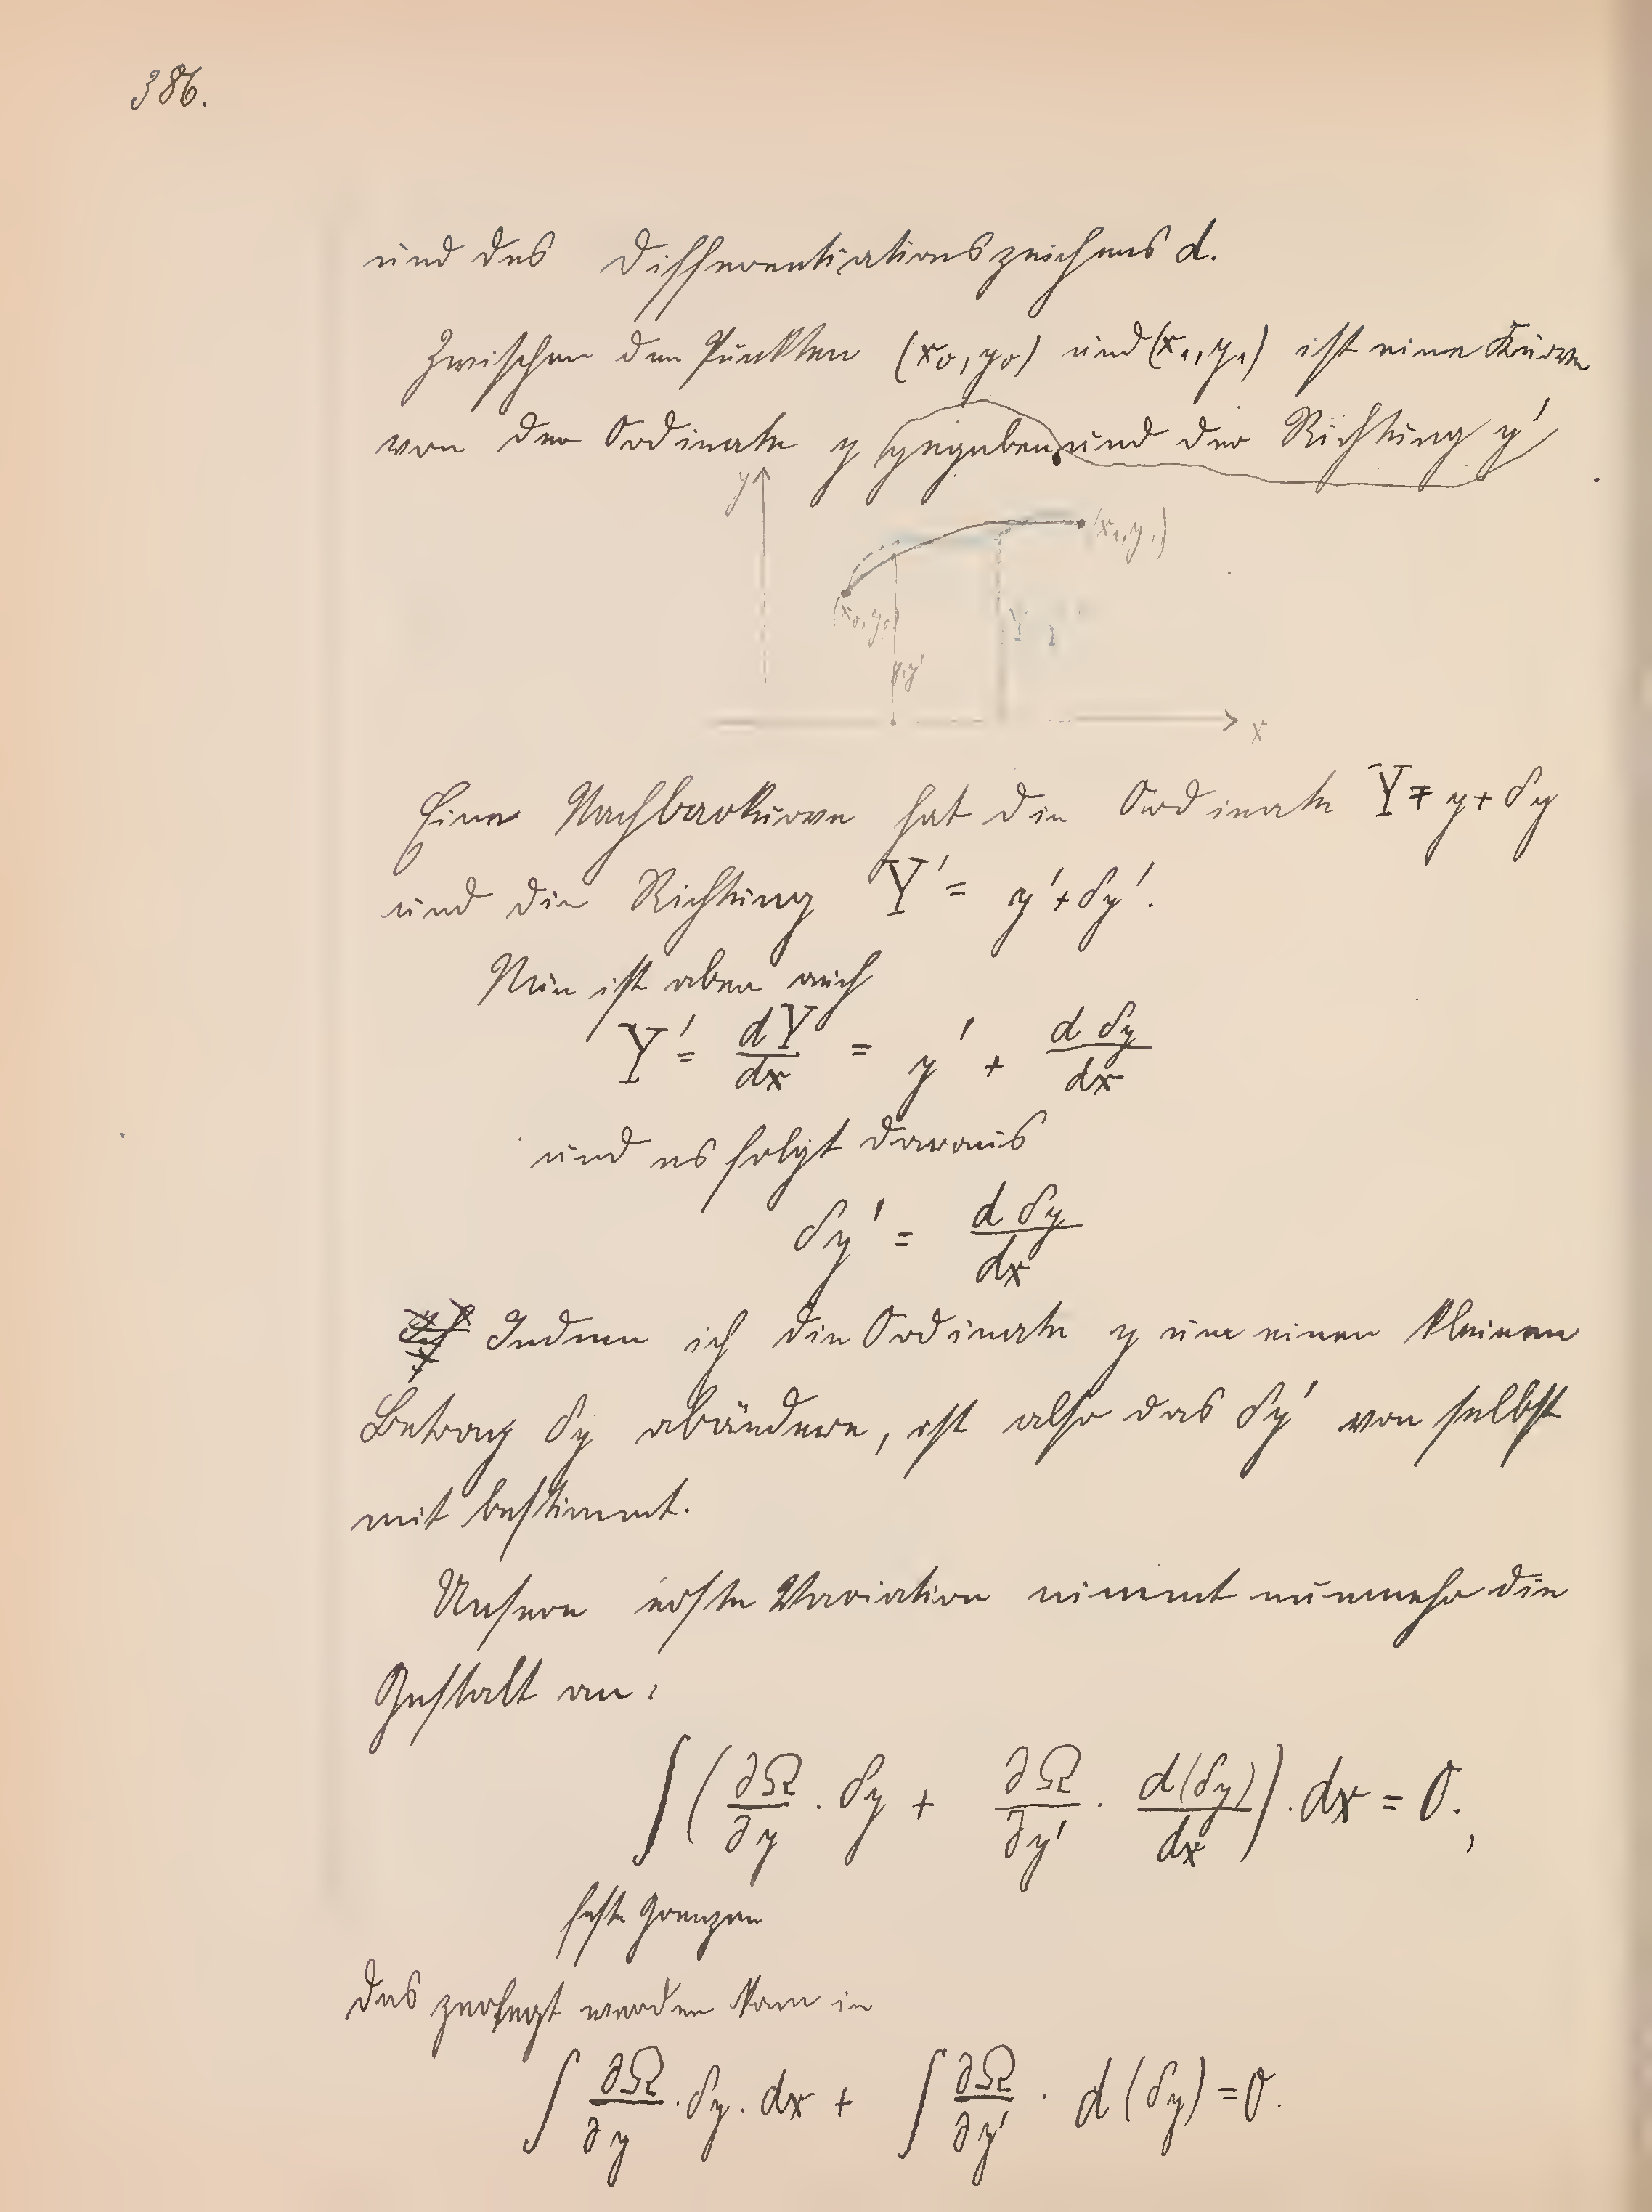 386.
und des Differentiationszeichens d.
Zwischen den Punkten (x₀, y₀) und (x₁, y₁) ist eine Kurve
von der Ordinate y gegeben und der Richtung y'
y
(x₁, y₁)
(x₀, y₀)
y, y'
x
Eine Nachbarkurve hat die Ordinate Y = y + δy
und die Richtung Y' = y' + δy'.
Nun ist aber auch
Y' = dY/dx = y' + d δy/dx
und es folgt daraus
δy' = d δy/dx
Indem ich die Ordinate y um einen kleinen
Betrag δy abändere, ist also das δy' von selbst
mit bestimmt.
Unsere erste Variation nimmt nunmehr die
Gestalt an:
∫ (∂Ω/∂y · δy + ∂Ω/∂y' · d(δy)/dx) · dx = 0.,
feste Grenzen
das zerlegt werden kann in
∫ ∂Ω/∂y · δy · dx + ∫ ∂Ω/∂y' · d(δy) = 0.